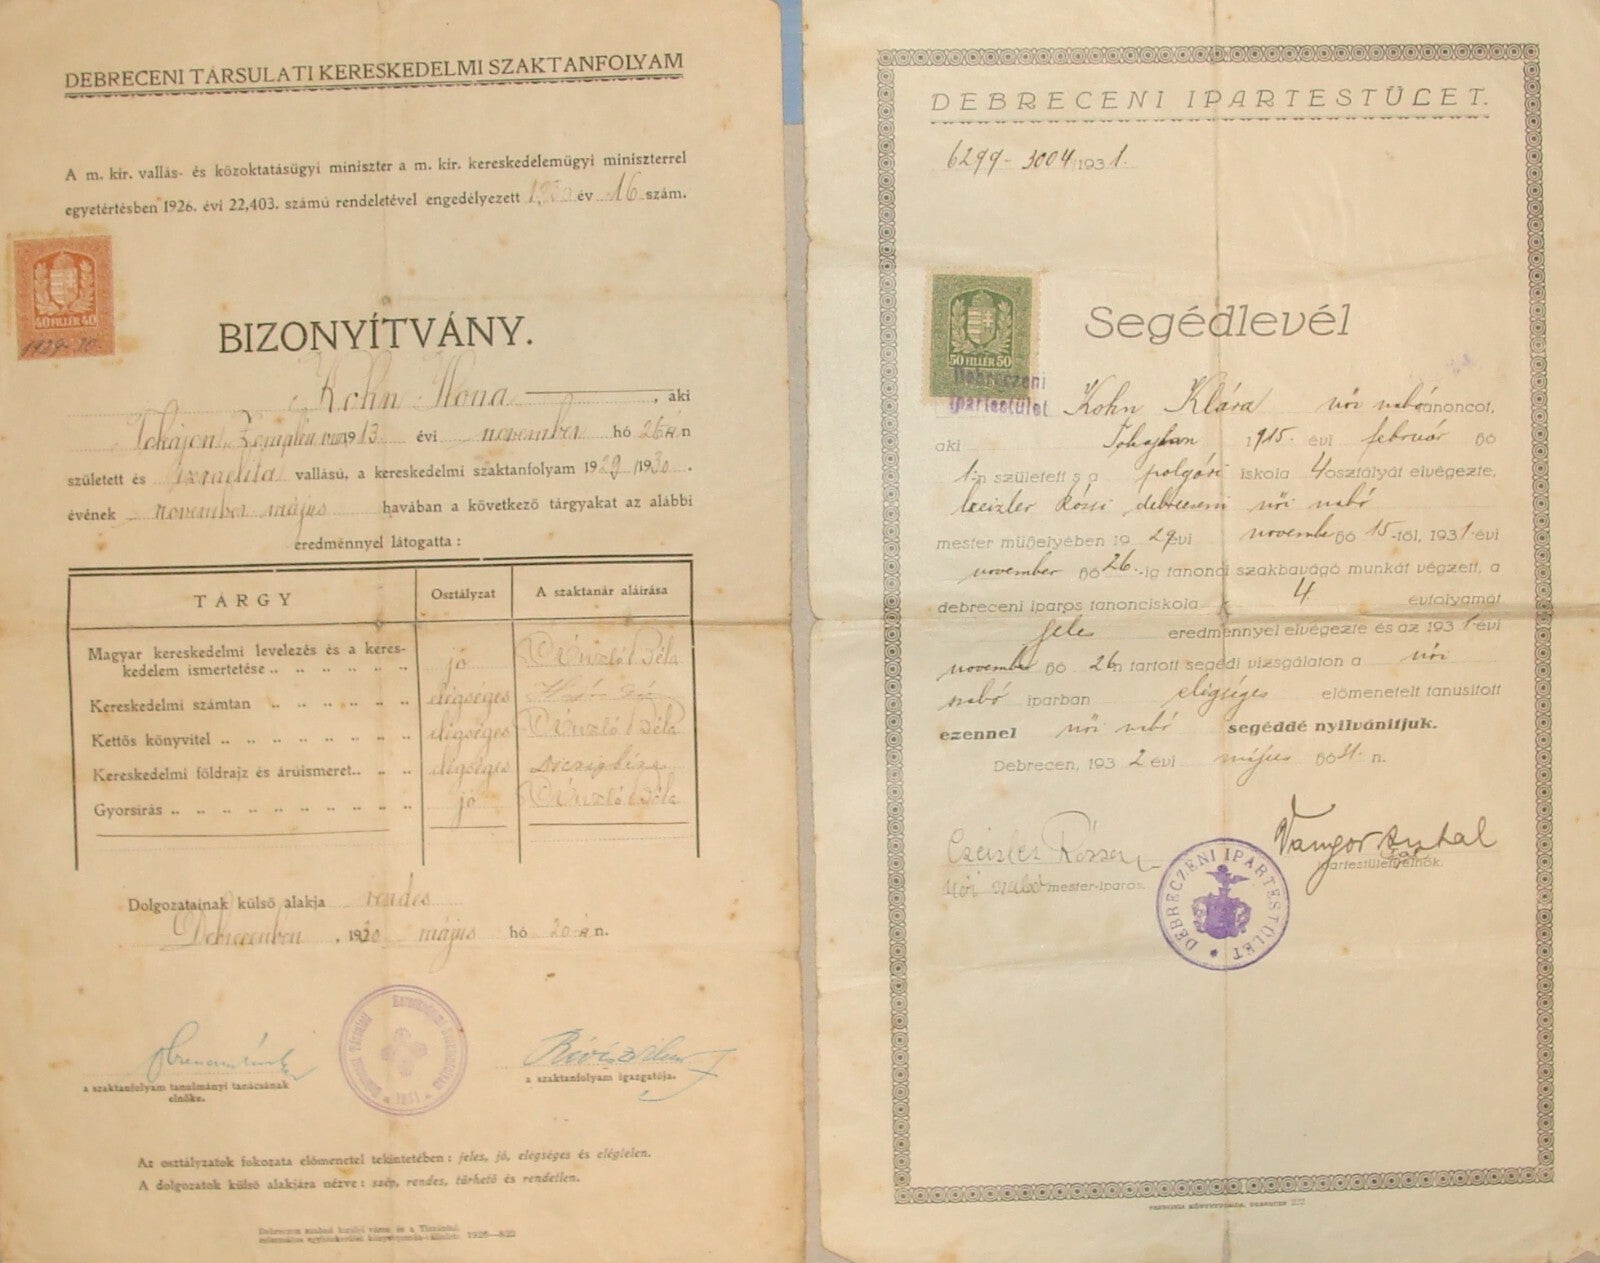 DEBRECENI TÁRSULATI KERESKEDELMI SZAKTANFOLYAM
A m. kir. vallás- és közoktatásügyi miniszter a m. kir. kereskedelemügyi miniszterrel
egyetértésben 1926. évi 22,403. számú rendeletével engedélyezett év 16 szám.
40 FILLÉR 40
1929-30.
BIZONYÍTVÁNY.
Kohn Ilona, aki
Tokajon, Zemplén vm 1913 évi november hó 26-án
született és izraelita vallású, a kereskedelmi szaktanfolyam 1929/1930.
évének november május havában a következő tárgyakat az alábbi
eredménnyel látogatta :
TÁRGY Osztályzat A szaktanár aláírása
Magyar kereskedelmi levelezés és a keres-
kedelem ismertetése jó Béla
Kereskedelmi számtan elégséges
Kettős könyvitel elégséges Béla
Kereskedelmi földrajz és árúismeret elégséges
Gyorsírás jó Béla
Dolgozatainak külső alakja rendes
Debrecenben, 1930 május hó 20-án.
a szaktanfolyam tanulmányi tanácsának
elnöke.
a szaktanfolyam igazgatója.
Az osztályzatok fokozata előmenetel tekintetében : jeles, jó, elegséges és elégtelen.
A dolgozatok külső alakjára nézve : szép, rendes, türhető és rendetlen.
Debrecen szabad királyi város és a Tiszántúl
református egyházkerület könyvnyomda-vállalata 1926—822
DEBRECENI IPARTESTÜLET.
6299-3004/1931.
50 FILLÉR 50
Debreczeni
Ipartestület
Segédlevél
Kohn Klára női szabótanoncot,
aki Tokajban 1915. évi február hó
1-n született s a polgári iskola 4 osztályát elvégezte,
Czeizler Rózsi debreceni női szabó
mester műhelyében 1929 évi november hó 15-től, 1931 évi
november hó 26.-ig tanonci szakbavágó munkát végzett, a
debreceni iparos tanonciskola 4 évfolyamát
jeles eredménnyel elvégezte és az 1931 évi
november hó 26n tartott segédi vizsgálaton a női
szabó iparban elégséges előmenetelt tanusított
ezennel női szabó segéddé nyilvánitjuk.
Debrecen, 1932 évi május hó 31-n.
Czeizler Rózsi
női szabó mester-iparos.
Antal
ipartestületi elnök.
DEBRECZENI IPARTESTÜLET